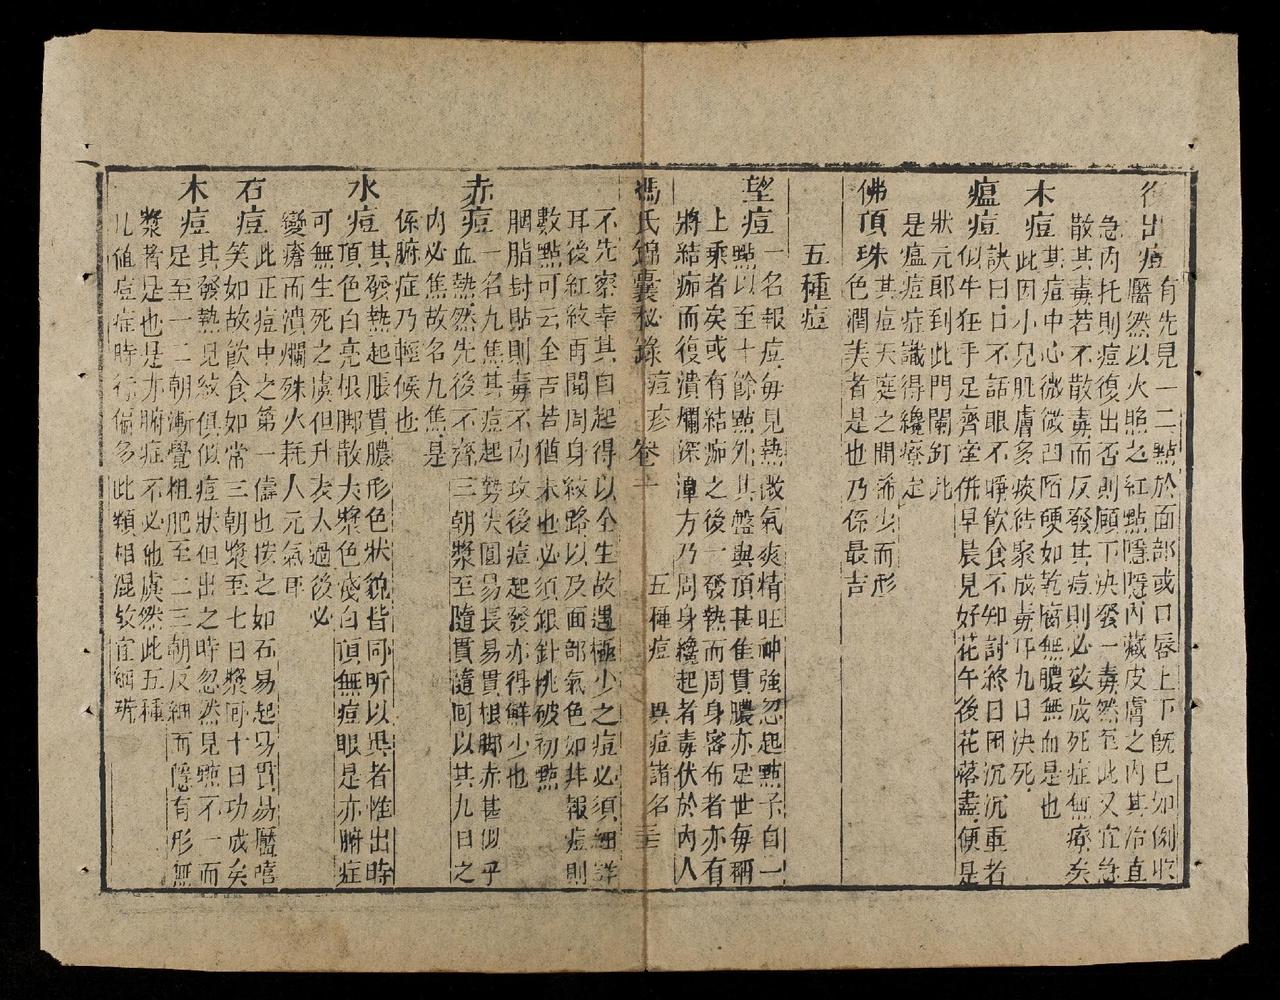 復出痘有先見一二點於面部或口唇上下旣已如倒收
靨然以火照之紅點隱隱內藏皮膚之內其治直
急內托則痘復出否則頤下決發一毒然至此又宜急
散其毒若不散毒而反發其痘則必致成死症無療矣
木痘其痘中心微微凹陷硬如乾痂無膿無血是也
此因小兒肌膚多痰結聚成毒耳九日決死
瘟痘訣曰口不話眼不睜飲食不知討終日困沉沉重者
似牛狂手足齊牽併早晨見好花午後花落盡便是
狀元郎到此門闌釘此
是瘟痘症識得纔療定
佛頂珠其痘天庭之間希少而形
色潤美者是也乃係最吉
五種痘
望痘一名報痘每見熱微氣爽精旺神強忽起點子自一
點以至十餘點外其盤與頂甚佳貫膿亦足世每稱
上乘者矣或有結痂之後一發熱而周身密布者亦有
將結痂而復潰爛深潭方乃周身纔起者毒伏於內人
馮氏錦囊秘錄 痘疹卷 五種痘 異痘諸名
不先察幸其自起得以全生故遇極少之痘必須細詳
耳後紅紋再閱周身紋路以及面部氣色如非報痘則
數點可云全吉若猶未也必須銀針挑破初點
胭脂封貼則毒不內攻後痘起發亦得鮮少也
赤痘一名九焦其痘起勢尖圓易長易貫根脚赤甚似乎
血熱然先後不齊三朝漿至隨貫隨回以其九日之
內必焦故名九焦是
係腑症乃輕候也
水痘其發熱起脹貫膿形色狀貌皆同所以異者惟出時
頂色白亮根脚散大漿色淺白頂無痘眼是亦腑症
可無生死之虞但升表太過後必
變瘡而潰爛殊火耗人元氣耳
石痘此正痘中之第一儔也按之如石易起易貫易靨嘻
笑如故飲食如常三朝漿至七日漿回十日功成矣
木痘其發熱見紋俱似痘狀但出之時忽然見點不一而
足至一二朝漸覺粗肥至二三朝反細而隱有形無
漿著是也是亦腑症不必他虞然此五種
凡値痘症時行偏多此類相混故宜細珗